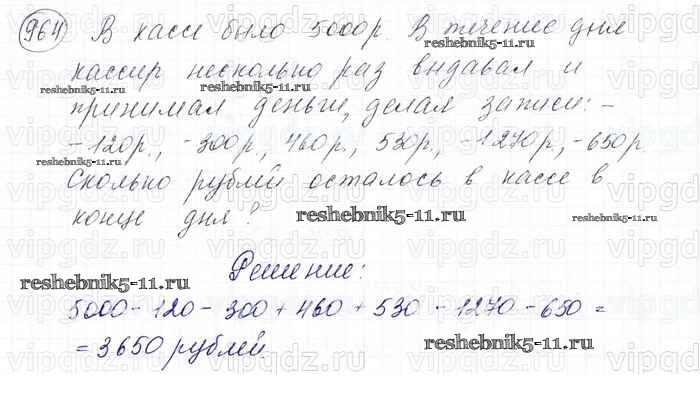 964) В кассе было 5000р. В течение дня
reshebnik5-11.ru
кассир несколько раз выдавал и
reshebnik5-11.ru reshebnik5-11.ru
принимал деньги, делая записи: -
-120р., -300р., 460р., 530р., -1270р., -650р.
reshebnik5-11.ru
Сколько рублей осталось в кассе в
конце дня?
reshebnik5-11.ru reshebnik5-11.ru
Решение:
reshebnik5-11.ru
5000-120-300+460+530-1270-650=
=3650 рублей
reshebnik5-11.ru
vipgdz.ru